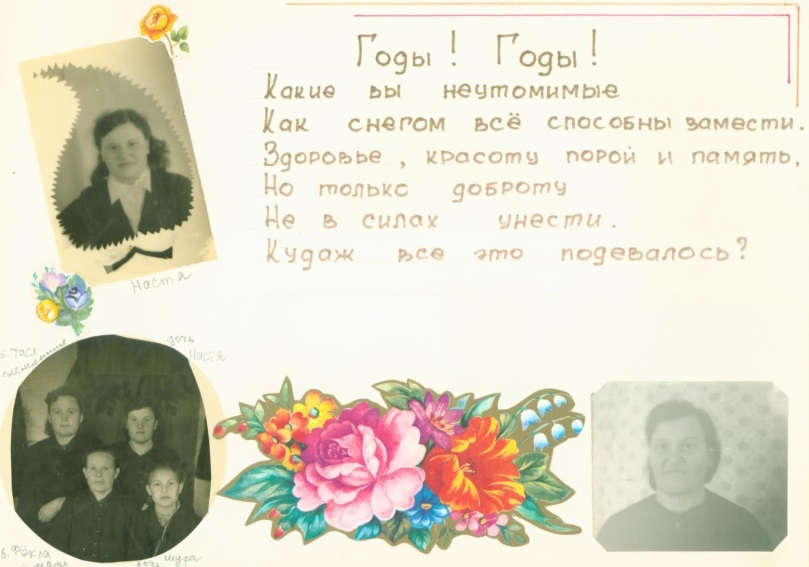 Годы! Годы!
Какие вы неутомимые
Как снегом всё способны замести.
Здоровье, красоту порой и память,
Но только доброту
Не в силах унести.
Кудаж все это подевалось?
Настя
Тася
племянница
дочь
Настя
в. Фёкла
- мама
Шура
дочь